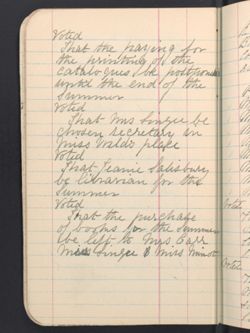 Voted
That the paying for
the printing of the
catalogues be postponed
until the end of the
Summer
Voted
That Mrs Singer be
chosen secretary in
Miss Wilds place
Voted
That Jeanie Salisbury
be librarian for the
Summer
Voted
That the purchase
of books for the Summer
be left to Mrs Carr
Mrs Singer & Miss Minot
Voted
Voted